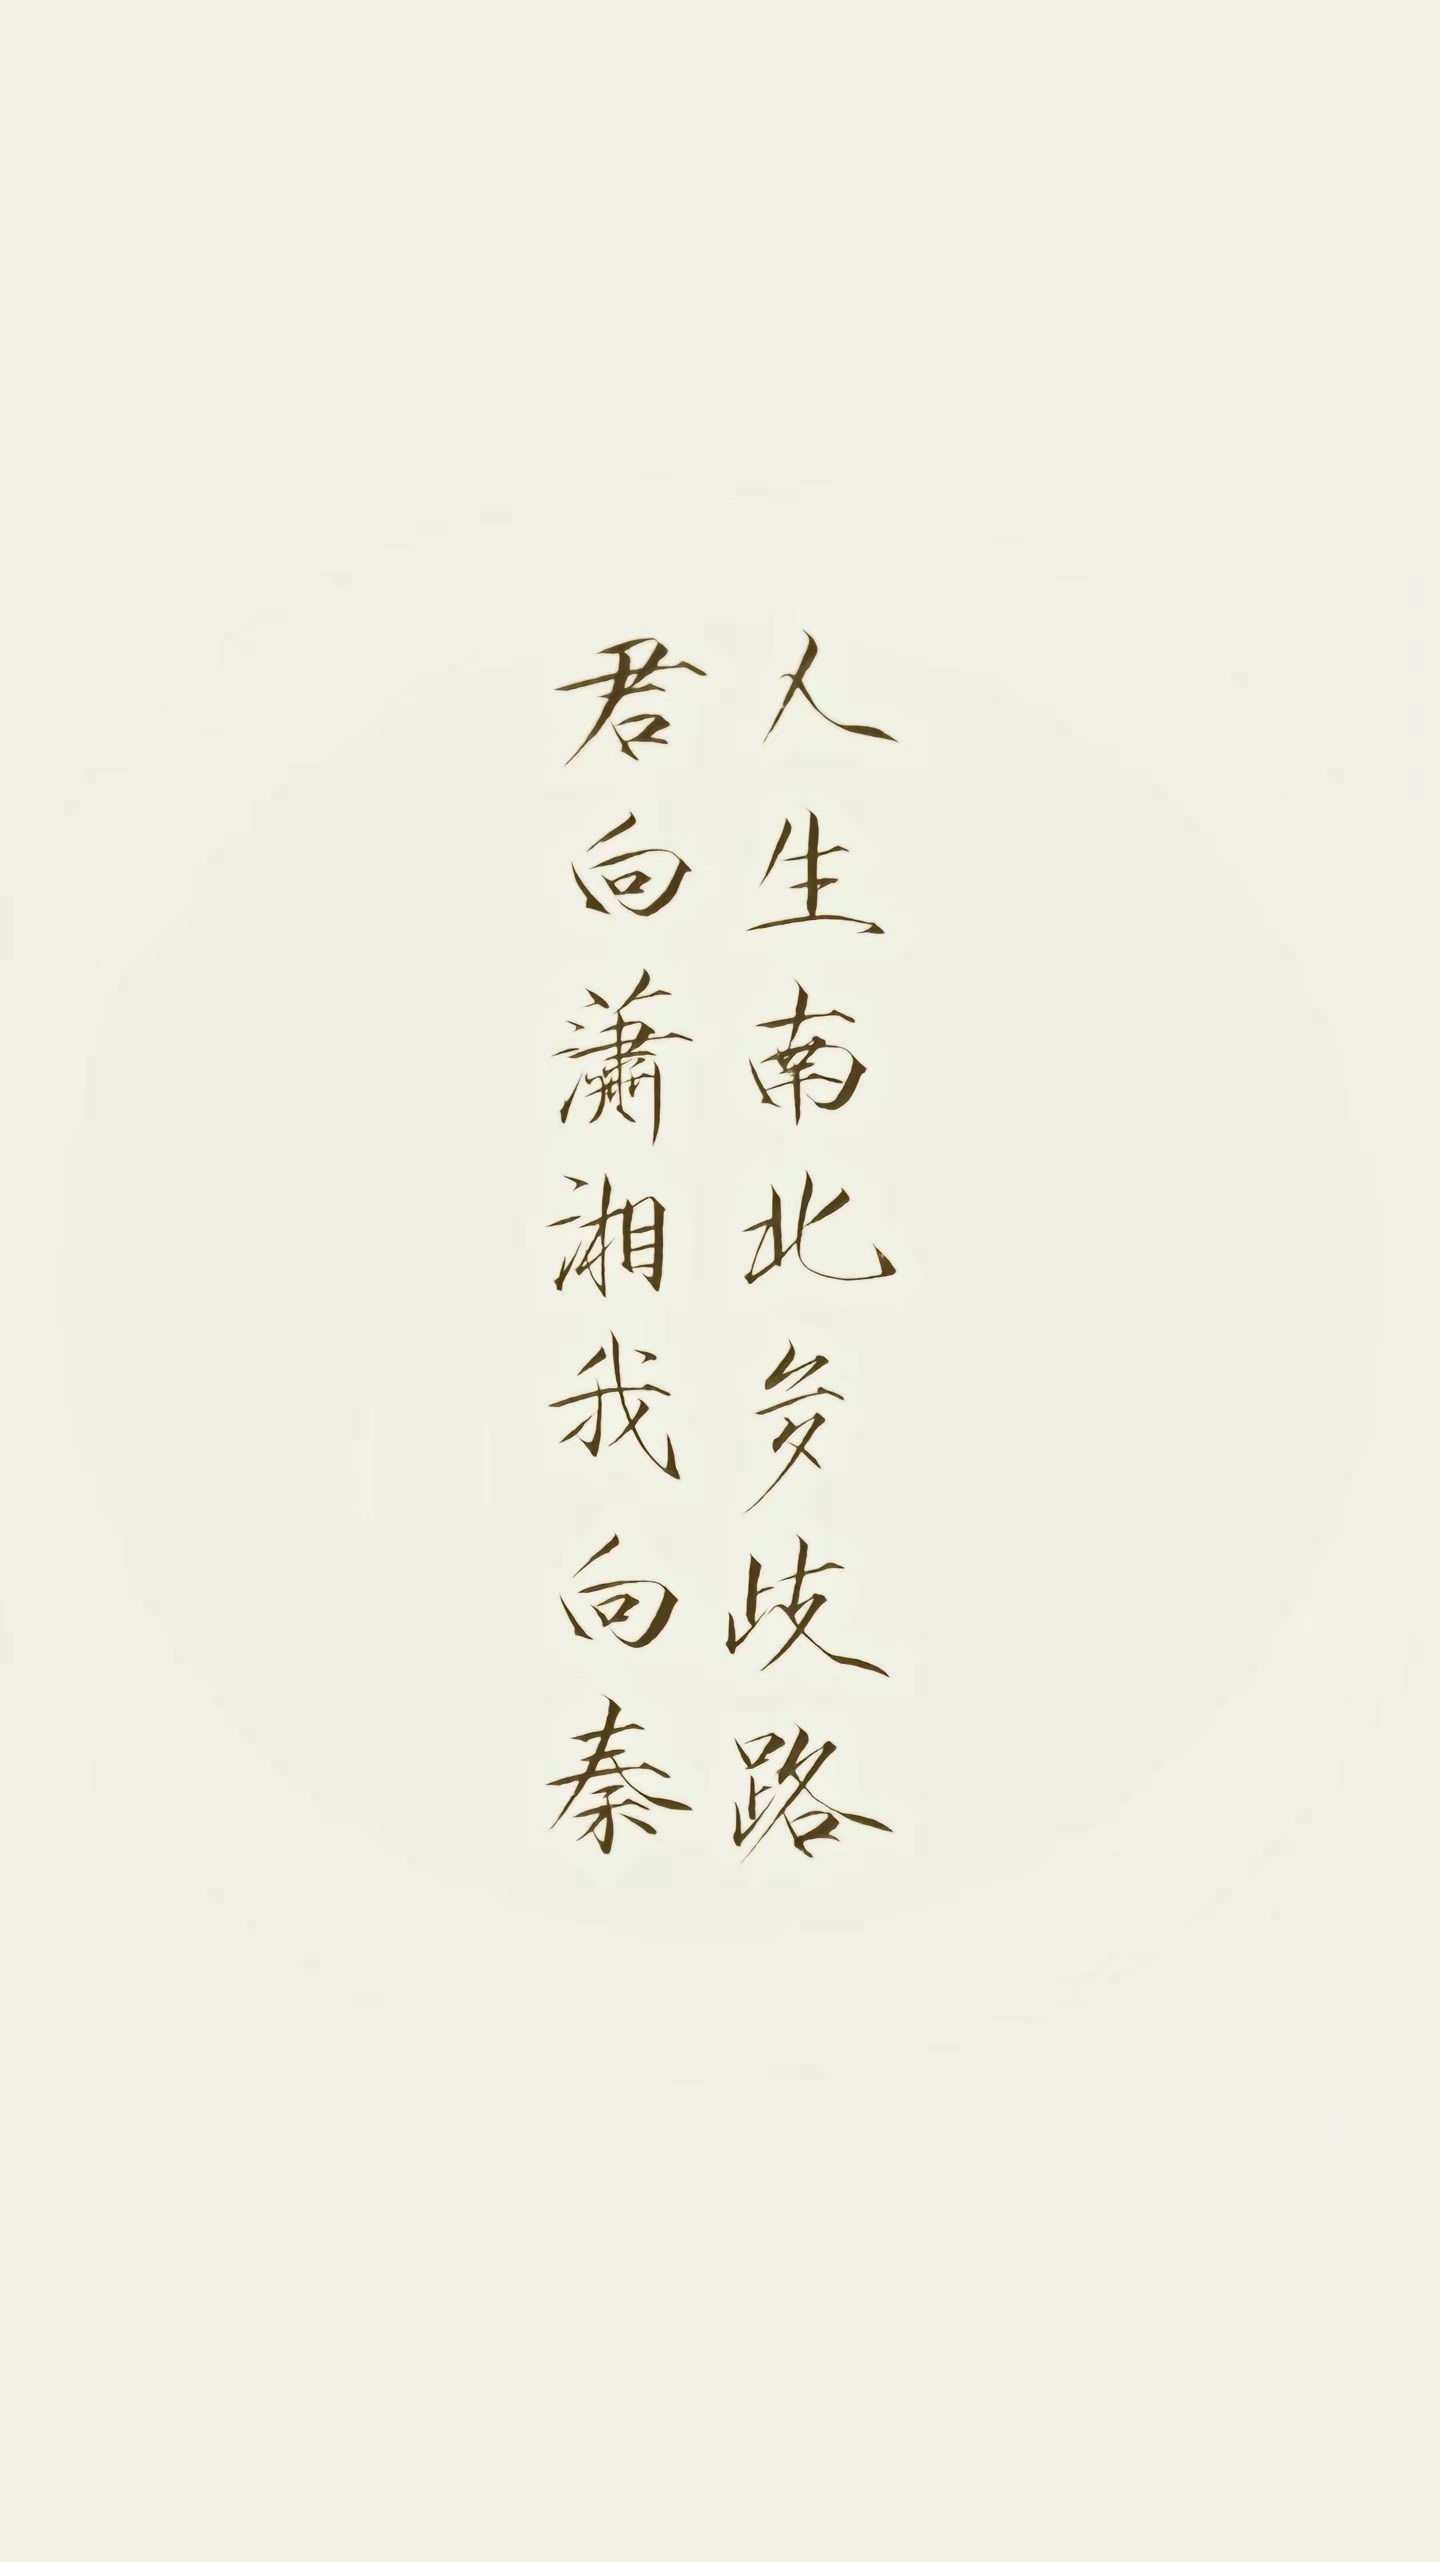 人生南北多歧路
君向瀟湘我向秦